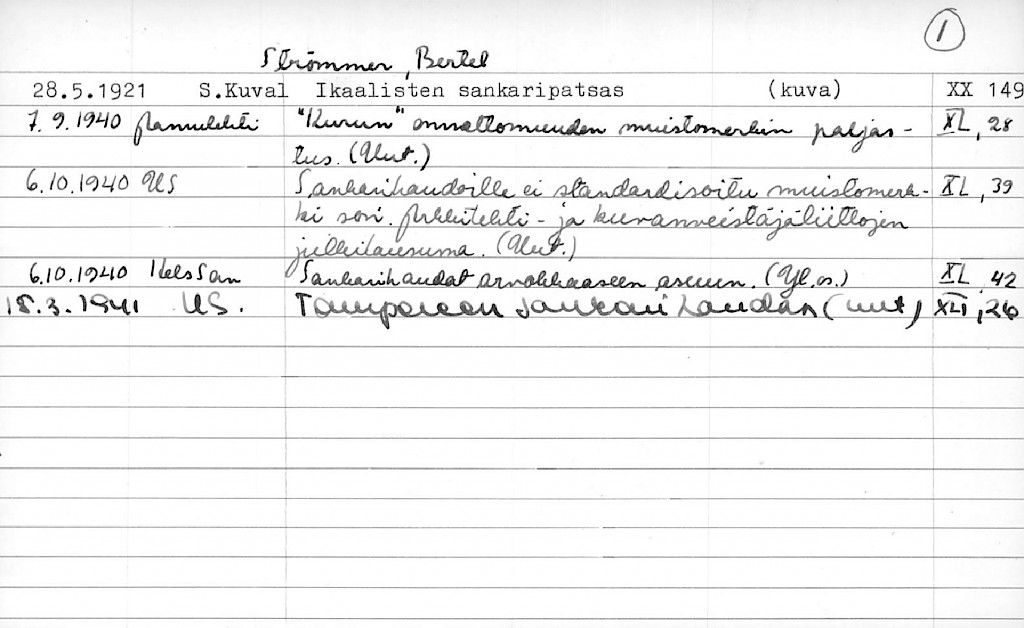 1
Strömmer, Bertel
28.5.1921 S.Kuval Ikaalisten sankaripatsas (kuva) XX 149
7.9.1940 Aamulehti "Kurun" onnettomuuden muistomerkin paljas- XL, 28
tus. (Uut.)
6.10.1940 US Sankarihaudoille ei standardisoitu muistomerk- XL, 39
ki sovi. Arkkitehti- ja kuvanveistäjäliittojen
julkilausuma. (Uut.)
6.10.1940 HelsSan Sankarihaudat arvokkaaseen asuun. (Yl.os.) XL, 42
15.3.1941 US. Tampereen sankarihaudan (uut) XLI, 26